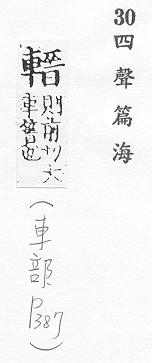 30 四聲篇海
則前切大
車簪也
（車部 P387）